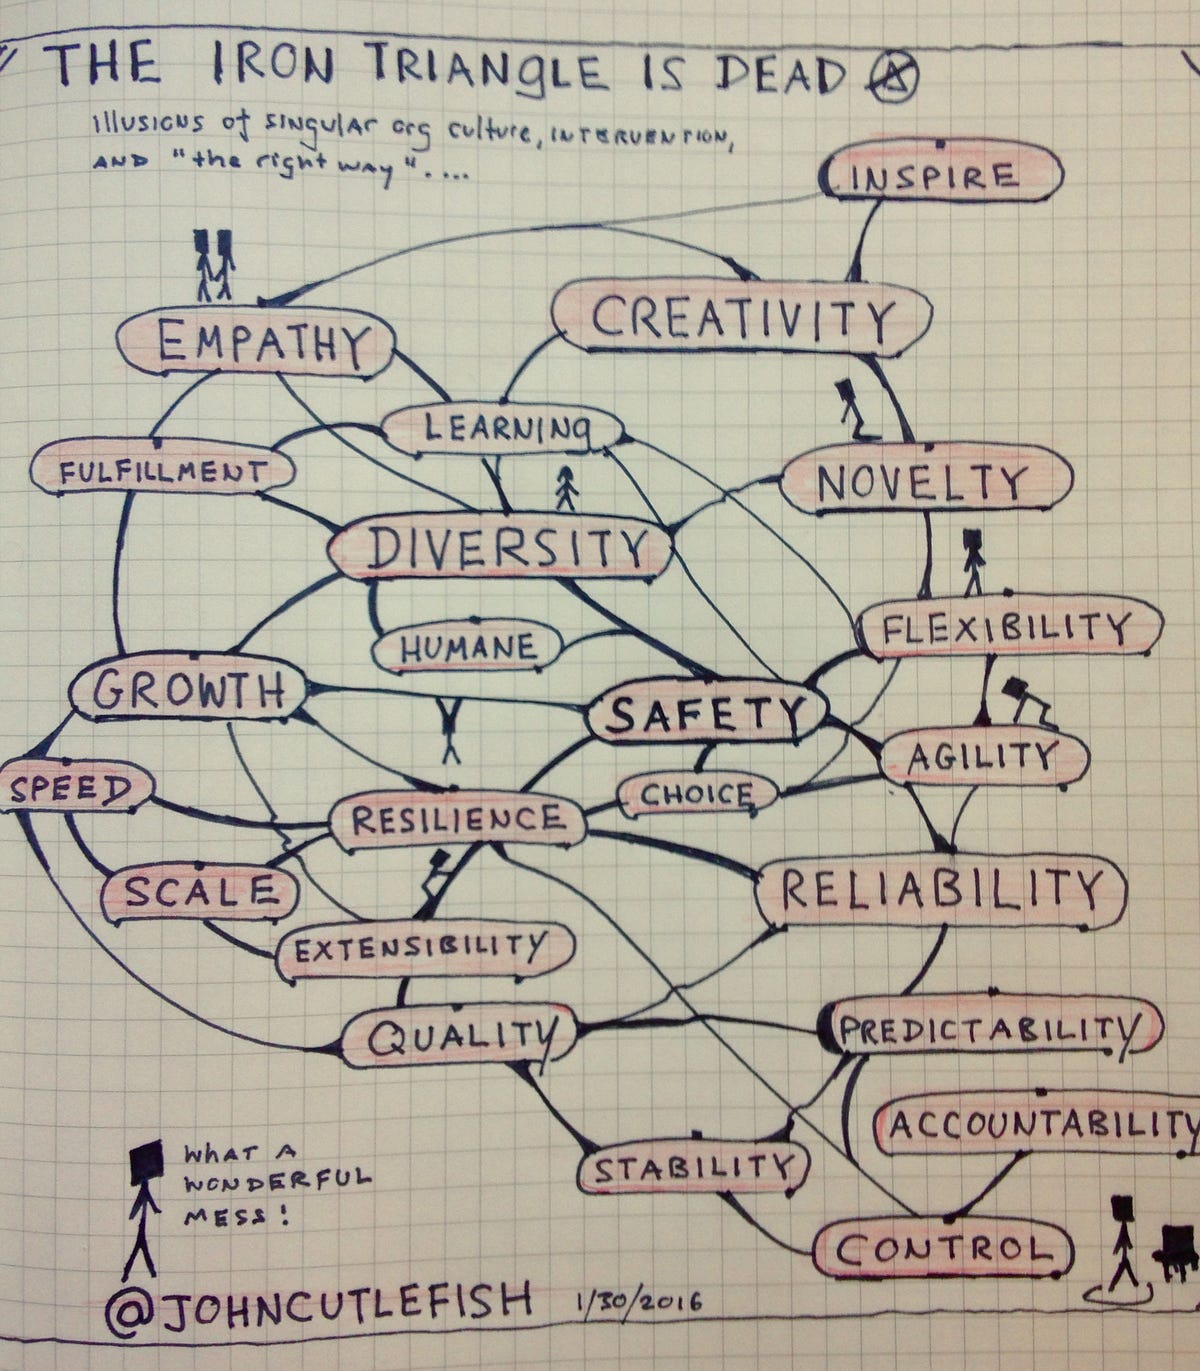 THE IRON TRIANGLE IS DEAD
ILLUSIONS of SINGULAR org culture, INTERVENTION,
AND "the right way"....
INSPIRE
EMPATHY
CREATIVITY
LEARNING
FULFILLMENT
NOVELTY
DIVERSITY
FLEXIBILITY
HUMANE
GROWTH
SAFETY
AGILITY
SPEED
CHOICE
RESILIENCE
SCALE
RELIABILITY
EXTENSIBILITY
QUALITY
PREDICTABILITY
ACCOUNTABILITY
STABILITY
CONTROL
WHAT A
WONDERFUL
MESS!
@JOHNCUTLEFISH 1/30/2016